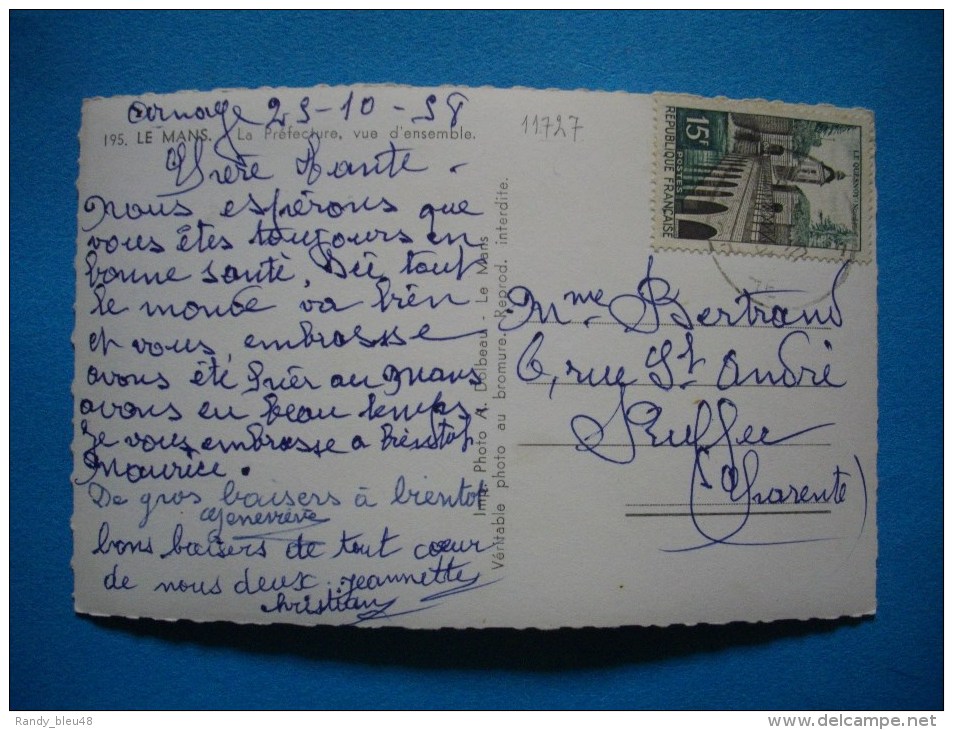 Arnage 23-10-58
195. LE MANS. - La Préfecture, vue d'ensemble.
11727
Chère Tante.
nous espérons que
vous êtes toujours en
bonne santé. Ici tout
le monde va bien
et vous embrasse
avons été hier au Mans
avons eu beau temps.
Je vous embrasse a bientot
Maurice.
De gros baisers à bientot
Geneviève
bons baisers de tout cœur
de nous deux. Jeannette
Christian
Imp. Photo A. Dolbeau - Le Mans
Véritable photo au bromure. Reprod. interdite.
15F
POSTES
REPUBLIQUE FRANÇAISE
LE QUESNOY
Mme Bertrand
6, rue St André
Ruffec
(Charente)
Randy_bleu48
www.delcampe.net